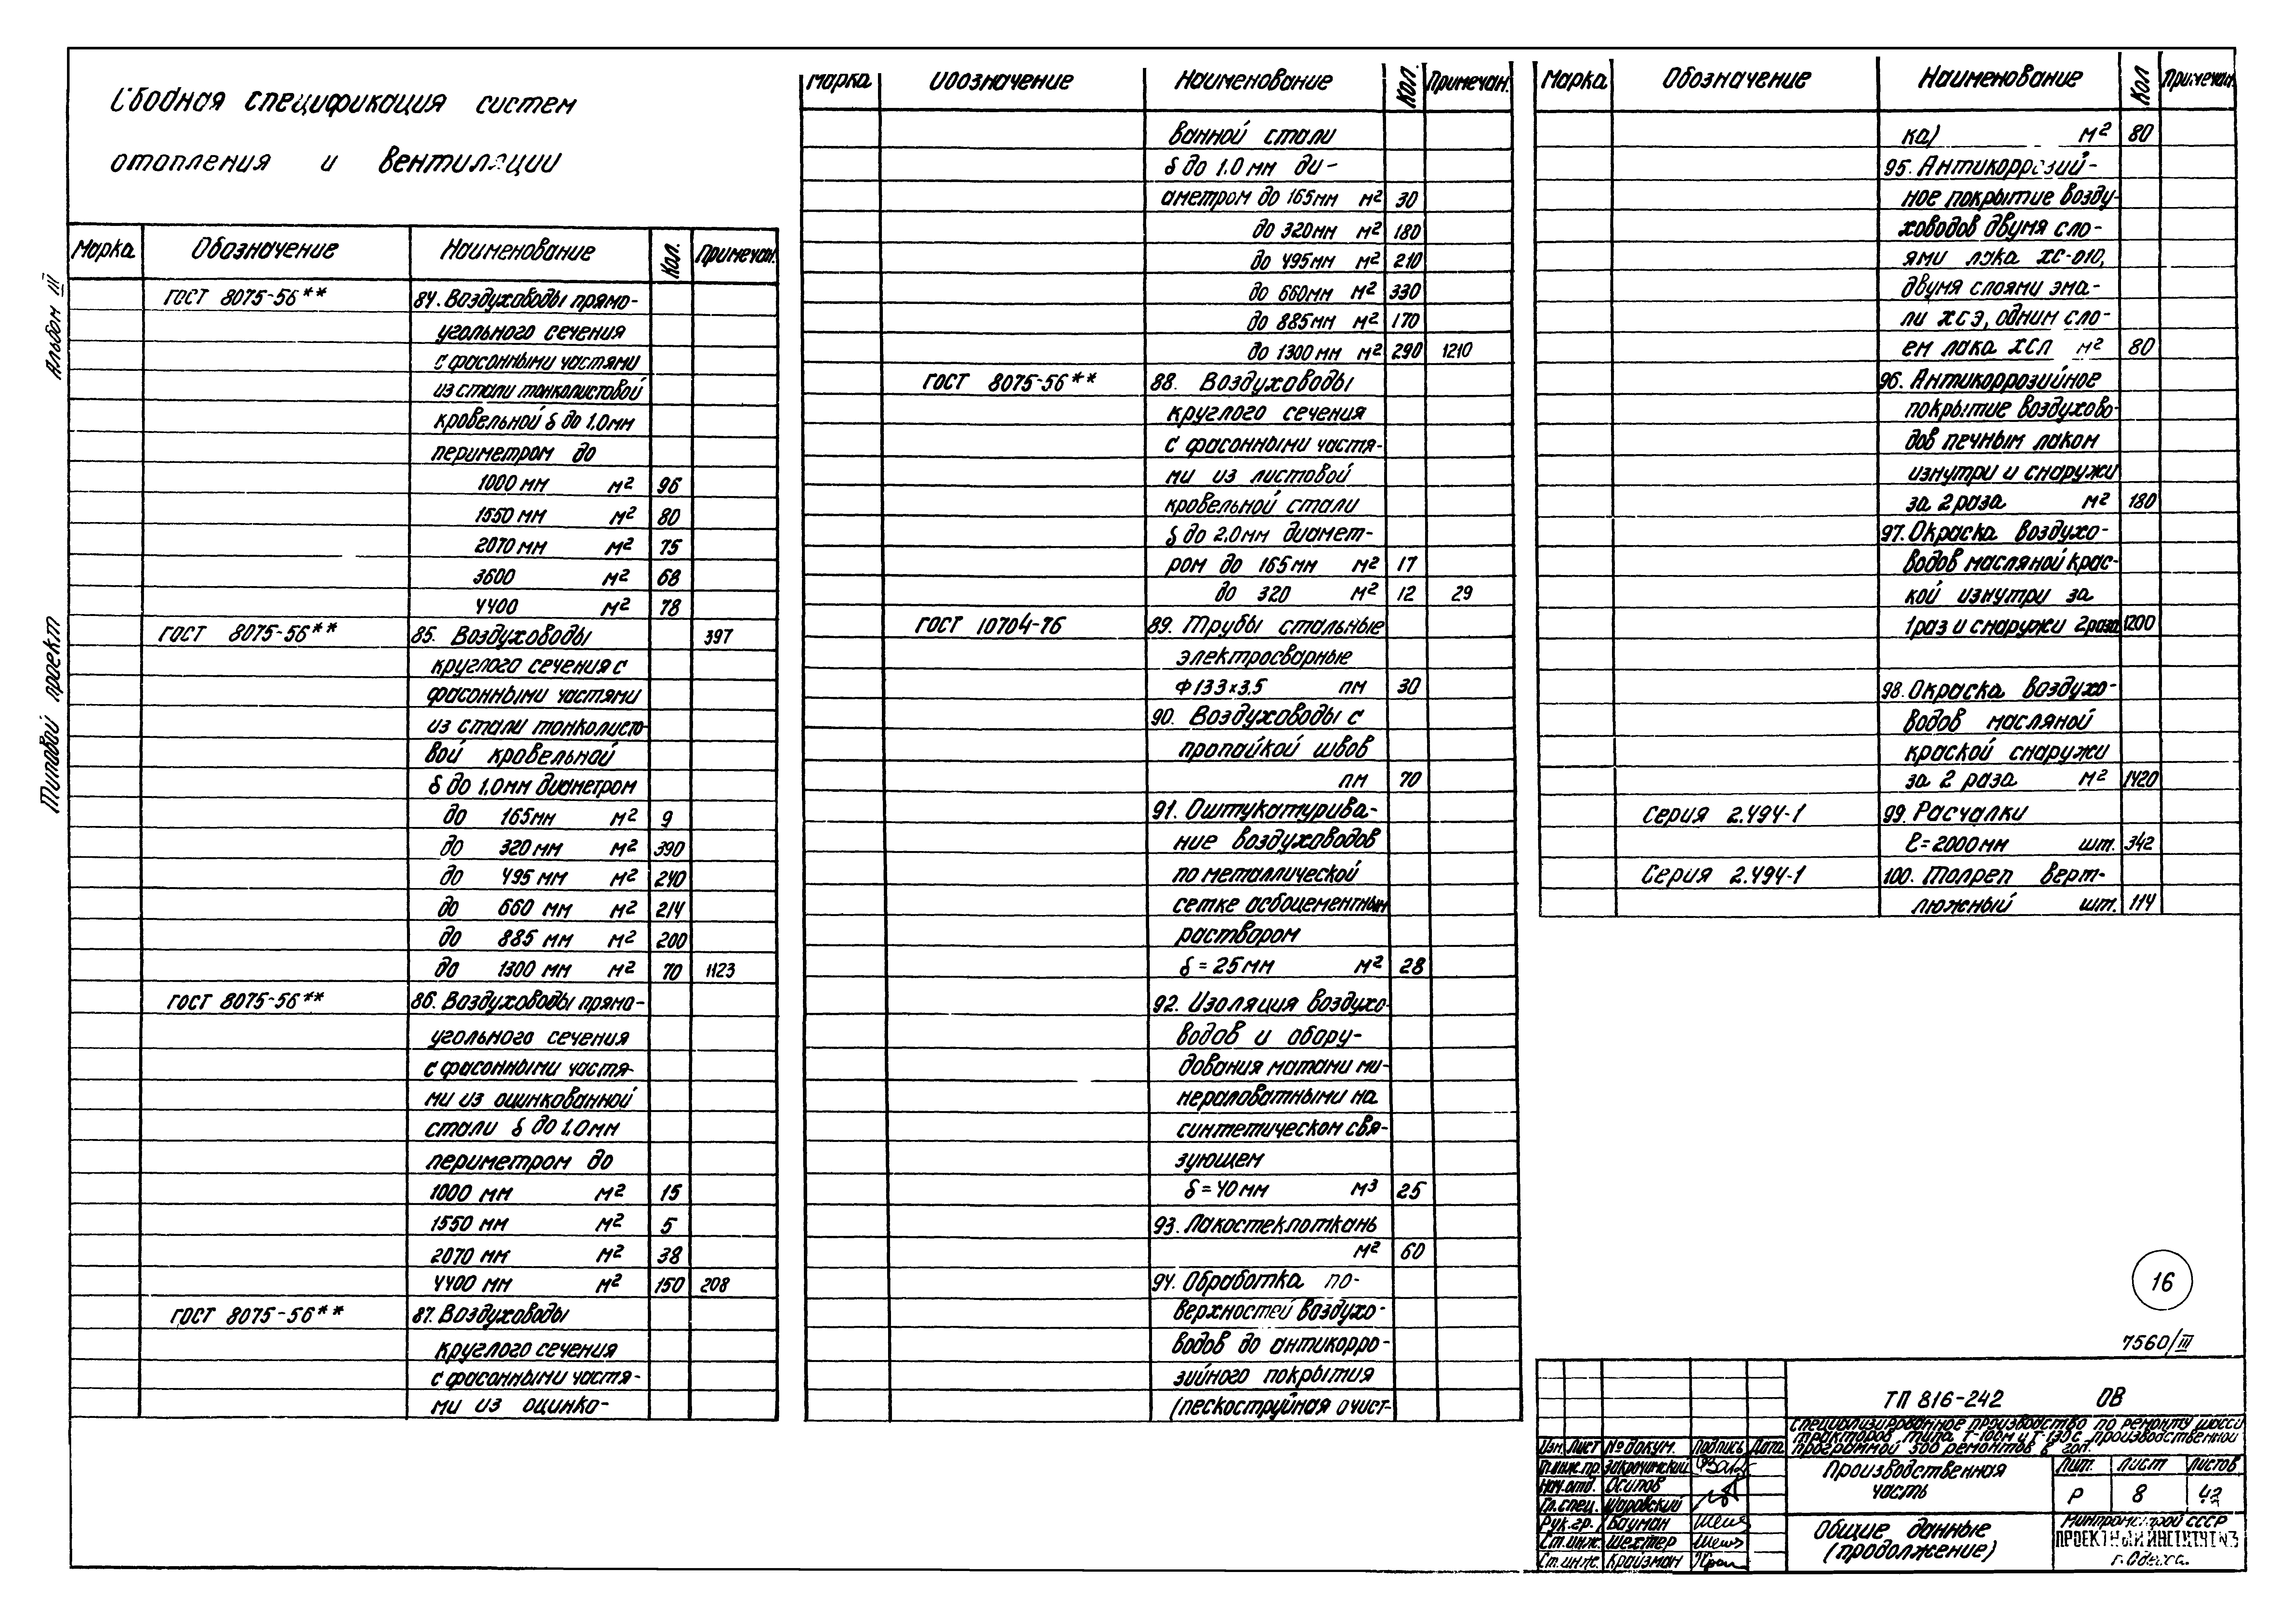 Сводная спецификация систем
отопления и вентиляции
Альбом III
Типовой проект
Марка Обозначение Наименование Кол. Примечан.
ГОСТ 8075-56** 84. Воздуховоды прямо-
угольного сечения
с фасонными частями
из стали тонколистовой
кровельной δ до 1.0мм
периметром до
1000 мм м² 96
1550 мм м² 80
2070 мм м² 75
3600 м² 68
4400 м² 78
ГОСТ 8075-56** 85. Воздуховоды 397
круглого сечения с
фасонными частями
из стали тонколисто-
вой кровельной
δ до 1.0мм диаметром
до 165мм м² 9
до 320 мм м² 390
до 495 мм м² 240
до 660 мм м² 214
до 885 мм м² 200
до 1300 мм м² 70 1123
ГОСТ 8075-56** 86. Воздуховоды прямо-
угольного сечения
с фасонными частя-
ми из оцинкованной
стали δ до 1.0мм
периметром до
1000 мм м² 15
1550 мм м² 5
2070 мм м² 38
4400 мм м² 150 208
ГОСТ 8075-56** 87. Воздуховоды
круглого сечения
с фасонными частя-
ми из оцинко-
Марка Обозначение Наименование Кол. Примечан.
ванной стали
δ до 1.0 мм ди-
аметром до 165мм м² 30
до 320мм м² 180
до 495мм м² 210
до 660мм м² 330
до 885мм м² 170
до 1300 мм м² 290 1210
ГОСТ 8075-56** 88. Воздуховоды
круглого сечения
с фасонными частя-
ми из листовой
кровельной стали
δ до 2.0мм диамет-
ром до 165мм м² 17
до 320 м² 12 29
ГОСТ 10704-76 89. Трубы стальные
электросварные
Ф133×3.5 пм 30
90. Воздуховоды с
пропайкой швов
пм 70
91. Оштукатурива-
ние воздуховодов
по металлической
сетке асбоцементным
раствором
δ = 25мм м² 28
92. Изоляция воздухо-
водов и обору-
дования матами ми-
нераловатными на
синтетическом свя-
зующем
δ = 40мм м³ 25
93. Лакостеклоткань
м² 60
94. Обработка по-
верхностей воздухо-
водов до антикорро-
зийного покрытия
(пескоструйная очист-
Марка Обозначение Наименование Кол Примечан.
ка) м² 80
95. Антикоррозий-
ное покрытие возду-
ховодов двумя сло-
ями лака ХС-010,
двумя слоями эма-
ли ХСЭ, одним сло-
ем лака ХСЛ м² 80
96. Антикоррозийное
покрытие воздухово-
дов печным лаком
изнутри и снаружи
за 2 раза м² 180
97. Окраска воздухо-
водов масляной крас-
кой изнутри за
1раз и снаружи 2раза 1200
98. Окраска воздухо-
водов масляной
краской снаружи
за 2 раза м² 1420
Серия 2.494-1 99. Расчалки
ℓ = 2000мм шт. 342
Серия 2.494-1 100. Талреп верт-
люжный шт. 114
16
7560/III
ТП 816-242 ОВ
Специализированное производство по ремонту шасси
тракторов типа Т-100м и Т-130 с производственной
программой 500 ремонтов в год.
Изм. Лист № докум. Подпись Дата
Гл.инж.пр. Закрочимский
Нач.отд. Осипов
Гл.спец. Шаровский
Рук.гр. Бауман
Ст.инж. Шехтер
Ст.инж. Крайзман
Производственная
часть
Лит. Лист Листов
Р 8 42
Общие данные
(продолжение)
Минпромстрой СССР
ПРОЕКТНЫЙ ИНСТИТУТ №3
г. Одесса.